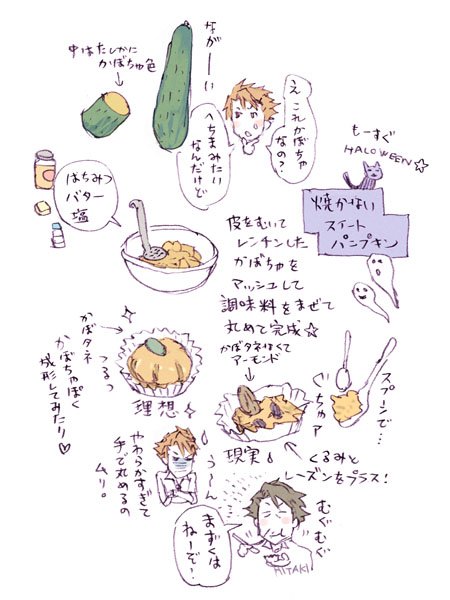 なが――い
中はたしかに
かぼちゃ色
え、これかぼちゃ
なの?
へちまみたい
なんだけど
もーすぐ
HALOWEEN☆
焼かない
スイート
パンプキン
はちみつ
バター
塩
皮をむいて
レンチンした
かぼちゃを
マッシュして
調味料をまぜて
丸めて完成☆
かぼタネ
つるっ
かぼちゃぽく
成形してみたり♡
理想
かぼタネなくて
アーモンド
スプーンで…
ぐちゃァ
現実
くるみと
レーズンをプラス!
う〜ん
やわらかすぎて
手で丸めるの
ムリ。
むぐむぐ
まずくは
ねーぞ!
HITAKI